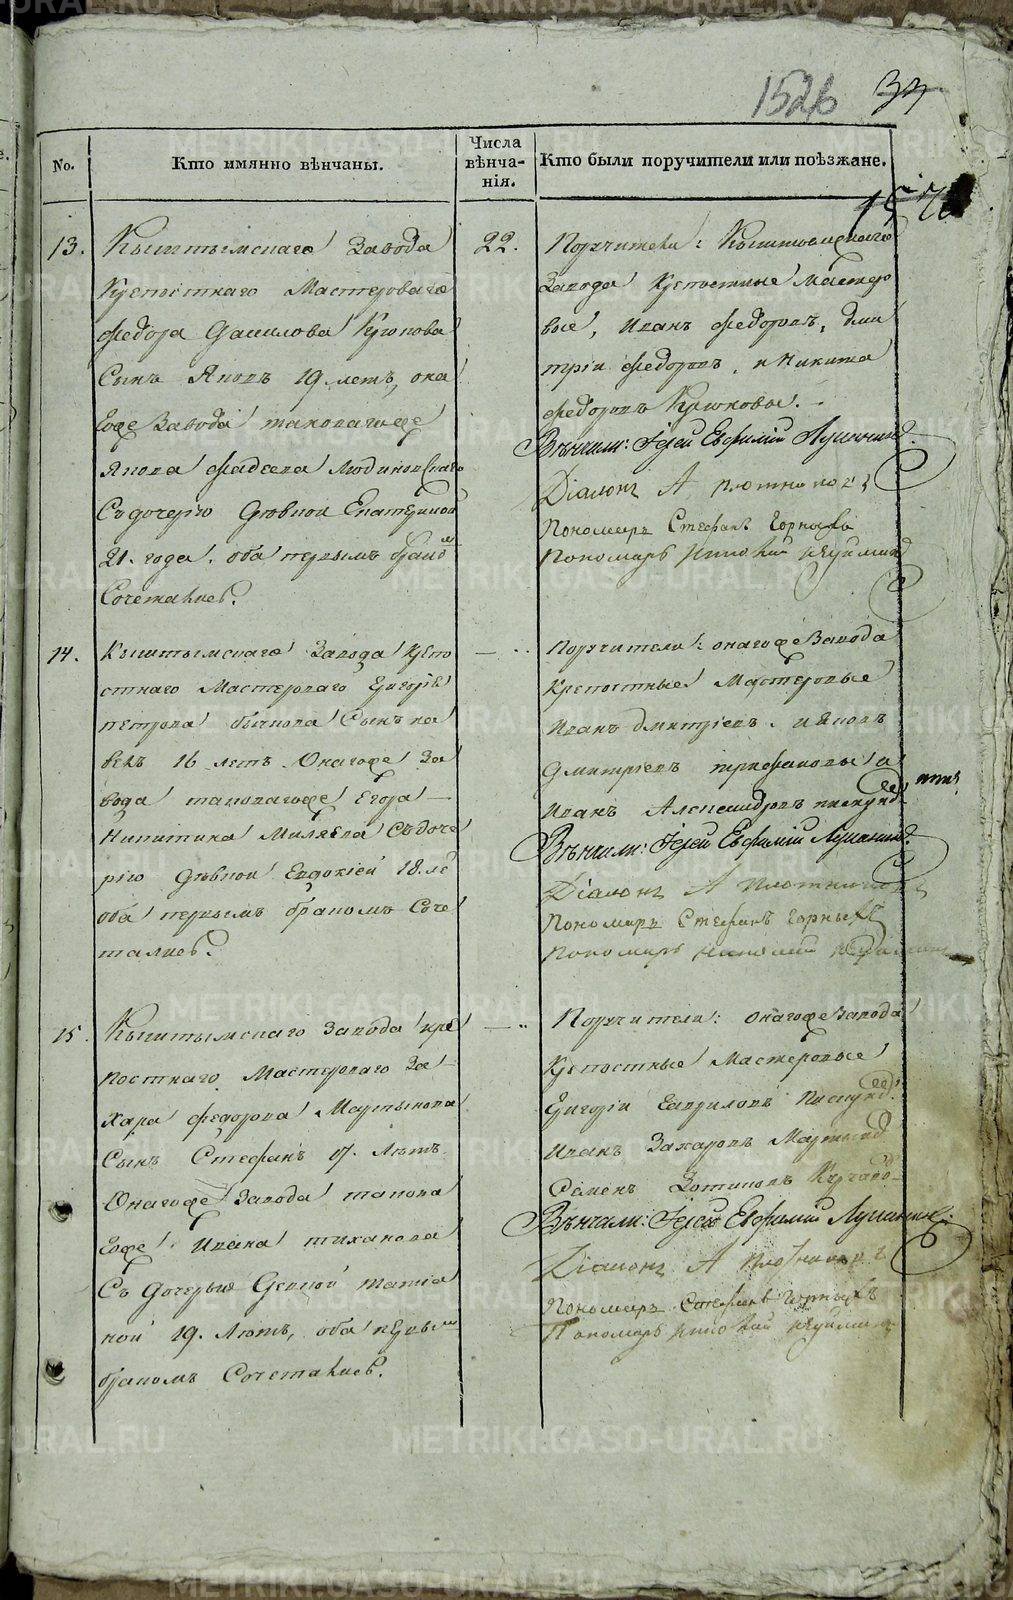 152б 33
No.
Кто имянно вѣнчаны.
Числа
вѣнча-
нія.
Кто были поручители или поѣзжане.
13.
Кыштымскаго Завода
Крепостнаго Мастероваго
Федора Данилова Крюкова
Сынъ Яковъ 19 летъ, она
гоже Завода таковагоже
Якова Фадеева Людиновскаго
Съ дочерію Девкой Екатериной
21. года. оба первымъ бракомъ
Сочетались.
22.
Поручители: Кыштымскаго
Завода Крепостные Мастеро
вые, Иванъ Федоровъ, дми
трій Федоровъ, и Никита
Федоровъ Крюковы.
Вѣнчали: Іерей Евфимій
Діаконъ А Плотниковъ
Пономарь Стефанъ Горныхъ
Пономарь
14.
Кыштымскаго Завода Крепо
стнаго Мастероваго Григорія
петрова бычкова Сынъ
16 летъ Онагоже За
вода таковагоже Егора
Никитина Миляева Съ доче
рію девкой Евдокіей 18. ле
оба первымъ бракомъ Соче
тались.
— "
Поручители: онагоже Завода
Крепостные Мастеровые
Иванъ дмитріевъ. и Яковъ
Дмитріевъ трифановы и
Иванъ Александровъ
Вѣнчали: Іерей Евфимій
Діаконъ А Плотниковъ
Пономарь Стефанъ Горныхъ
Пономарь
15.
Кыштымскаго Завода кре
постнаго Мастероваго За
хара Федорова Мартынова
Сынъ Стефанъ 17. Лѣтъ
Онагоже Завода такова
гоже Ивана тиханова
Съ Дочерью Девкой татіа
ной 19. Лѣтъ, оба первым
бракомъ Сочетались.
— "
Поручители: онагоже Завода
Крепостные Мастеровые
Григорій Гавриловъ
Иванъ Захаровъ
Семенъ Зотиковъ
Вѣнчали: Іерей Евфимій
Діаконъ А Плотниковъ
Пономарь Стефанъ Горныхъ
Пономарь
METRIKI.GASO-URAL.RU